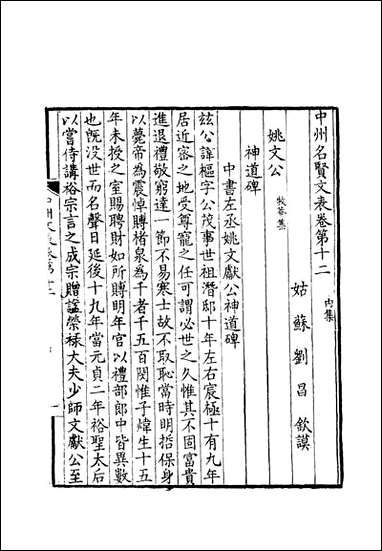 中州名賢文表卷第十二
內集
姑蘇劉昌欽謨
姚文公 牧菴集
神道碑
中書左丞姚文獻公神道碑
玆公諱樞字公茂事世祖潛邸十年左右宸極十有九年
居近密之地受尊寵之任可謂必世之久惟其不固富貴
進退禮敬窮達一節不易寒士故不取恥當時明哲保身
以薨帝為震悼賻楮泉為千者千五百閔惟子煒生十五
年未授之室賜聘財如所賻明年官以禮部郎中皆異數
也既没世而名聲日延後十九年當元貞二年裕聖太后
以嘗侍講裕宗言之成宗贈諡榮祿大夫少師文獻公至